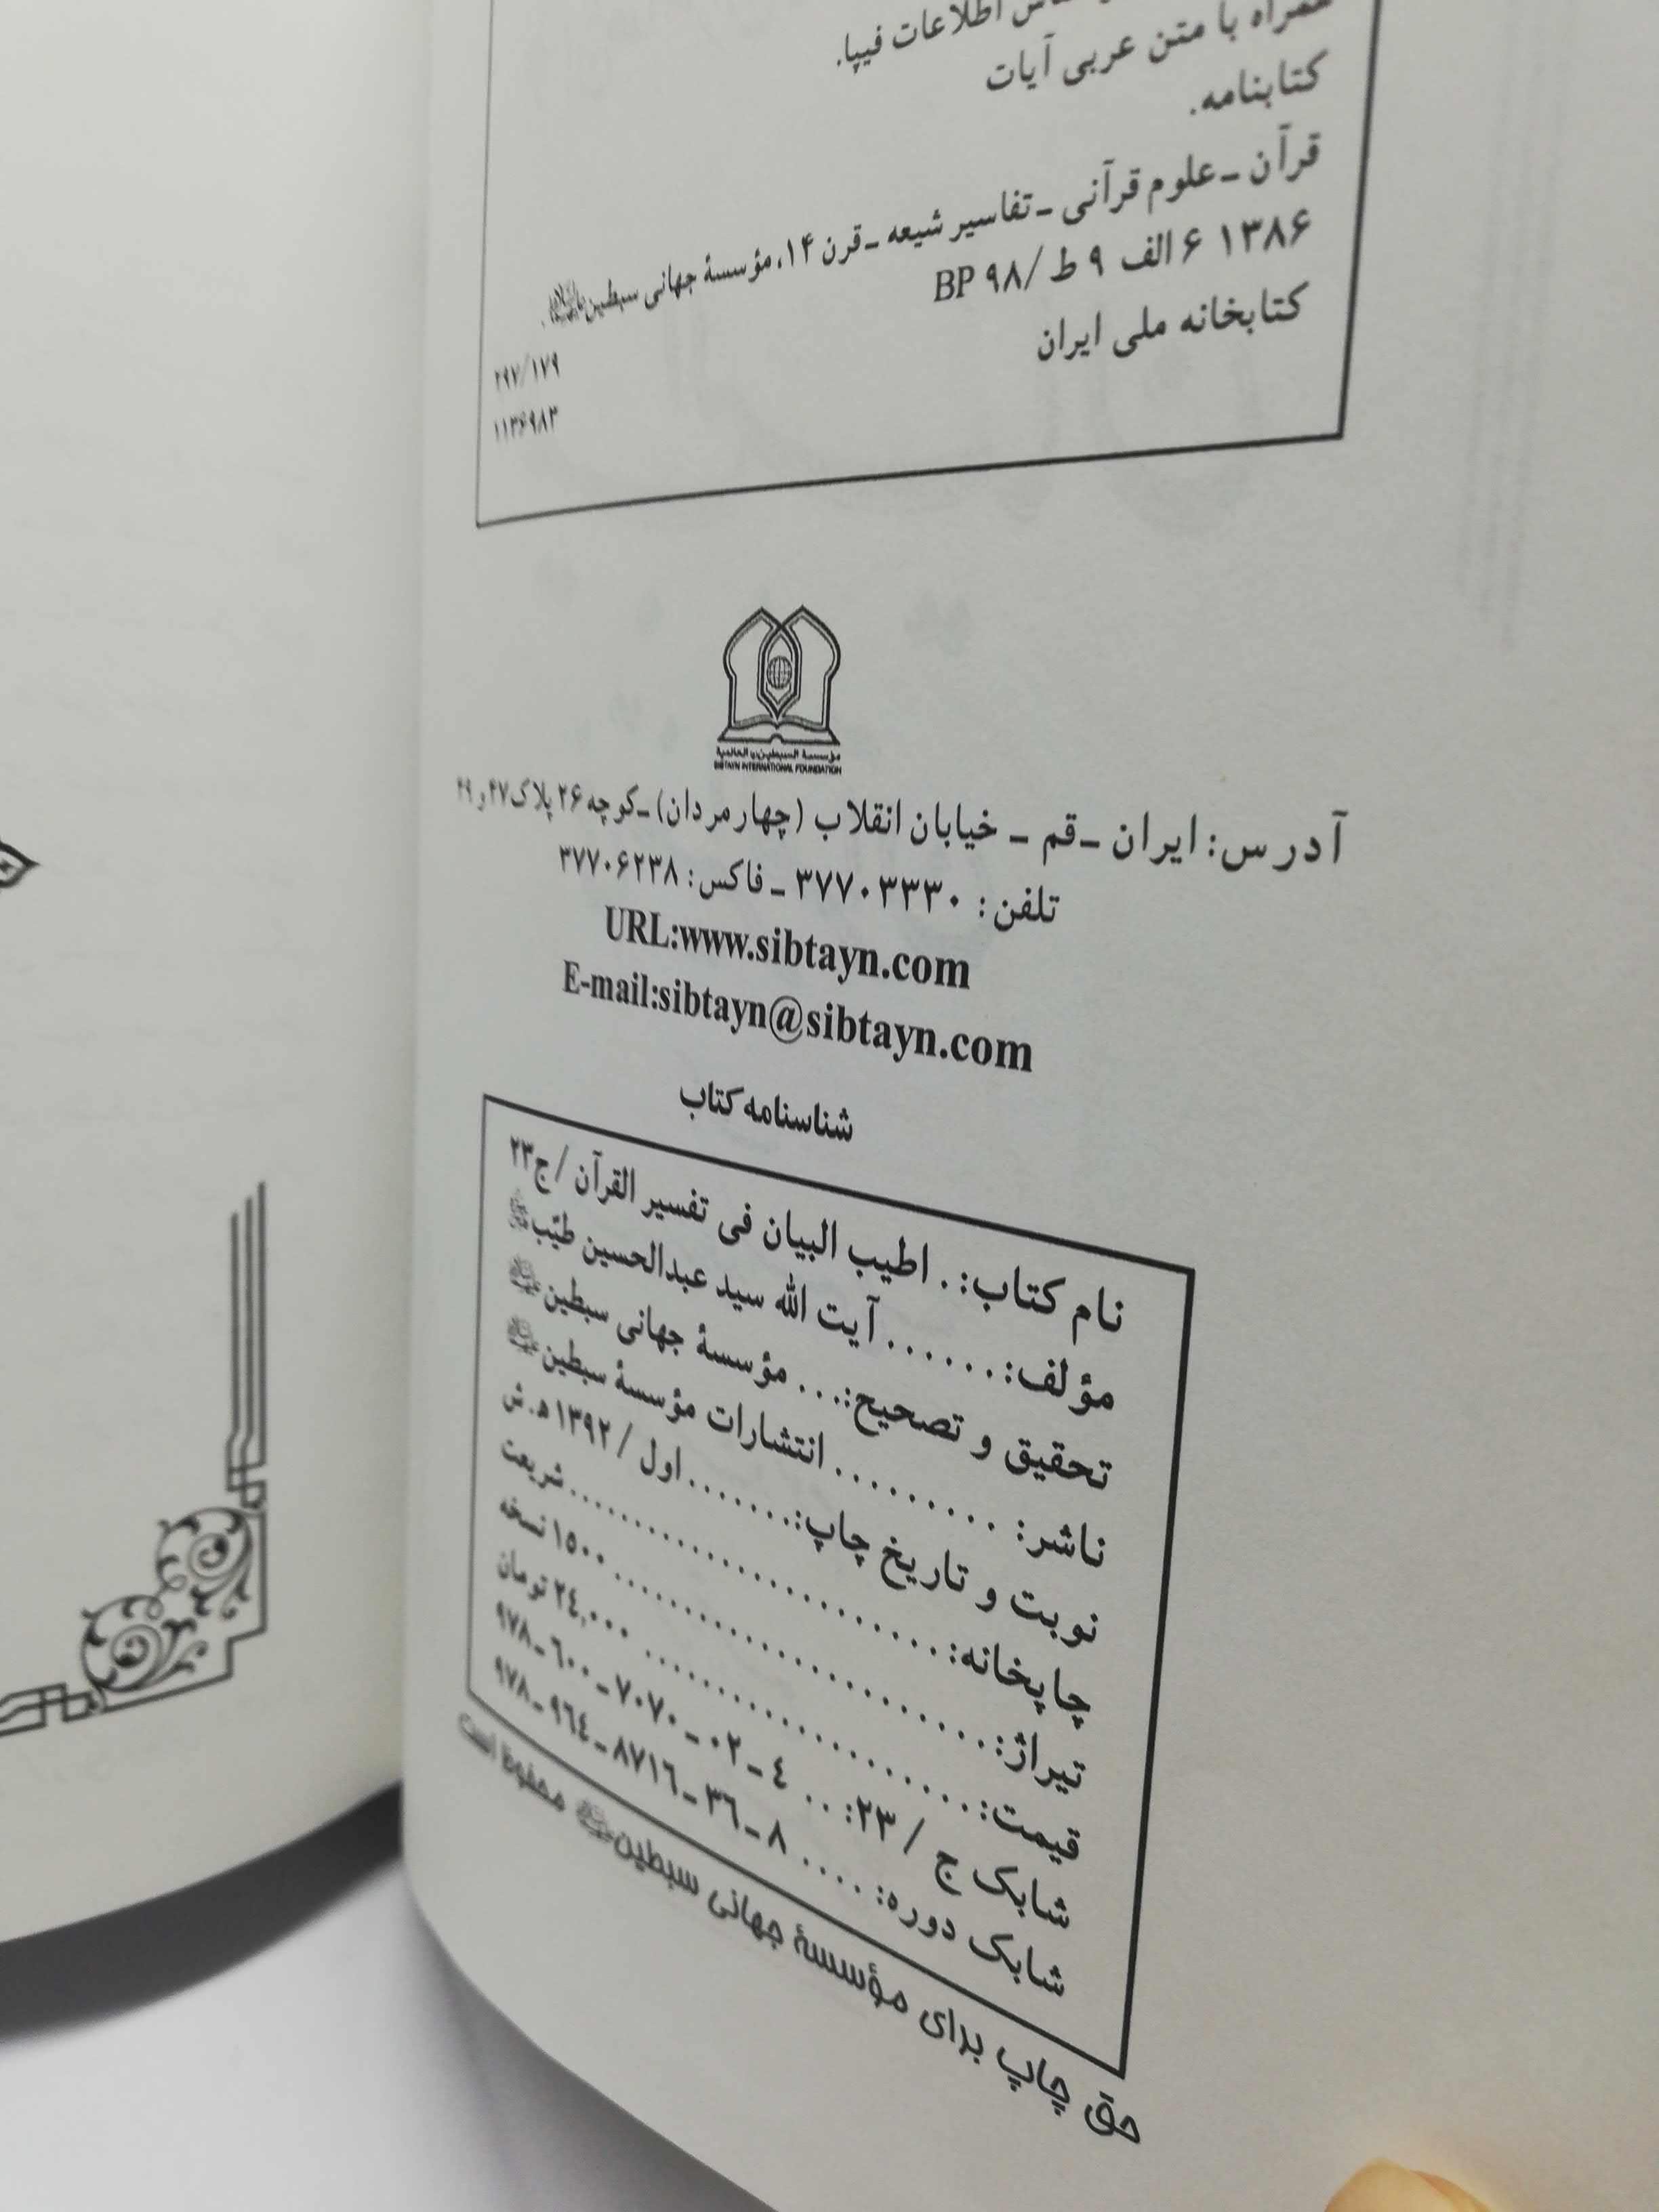 اطلاعات فیپا.
همراه با متن عربی آیات
کتابنامه.
قرآن ـ علوم قرآنی ـ تفاسیر شیعه ـ قرن ۱۴، مؤسسهٔ جهانی سبطین
۱۳۸۶ ۶ الف ۹ ط / ۹۸ BP
۲۹۷/۱۷۹
کتابخانه ملی ایران
۱۱۳۶۹۸۳
مؤسسة السبطین العالمیة
SIBTAYN INTERNATIONAL FOUNDATION
آدرس: ایران ـ قم ـ خیابان انقلاب (چهارمردان) ـ کوچه ۲۶ پلاک ۴۷ و ۴۹
تلفن: ۳۷۷۰۳۳۳۰ ـ فاکس: ۳۷۷۰۶۲۳۸
URL:www.sibtayn.com
E-mail:sibtayn@sibtayn.com
شناسنامه کتاب
نام کتاب: . اطیب البیان فی تفسیر القرآن / ج۲۳
مؤلف: . . . . . . آیت الله سید عبدالحسین طیّب
تحقیق و تصحیح: . . . مؤسسهٔ جهانی سبطین
ناشر: . . . . . . . . انتشارات مؤسسهٔ سبطین
نوبت و تاریخ چاپ: . . . . . . . اول / ۱۳۹۲ ه‍.ش
چاپخانه: . . . . . . . . . . . . . . . . . . شریعت
تیراژ: . . . . . . . . . . . . . . . . . . ۱۵۰۰ نسخه
قیمت: . . . . . . . . . . . . . . . . ۲٤,۰۰۰ تومان
شابک ج / ۲۳: . . . ۹۷۸-٦۰۰-۷۰۷۰-۰۲-٤
شابک دوره: . . . . ۹۷۸-۹٦٤-۸۷۱٦-۳٦-۸
حق چاپ برای مؤسسهٔ جهانی سبطین محفوظ است